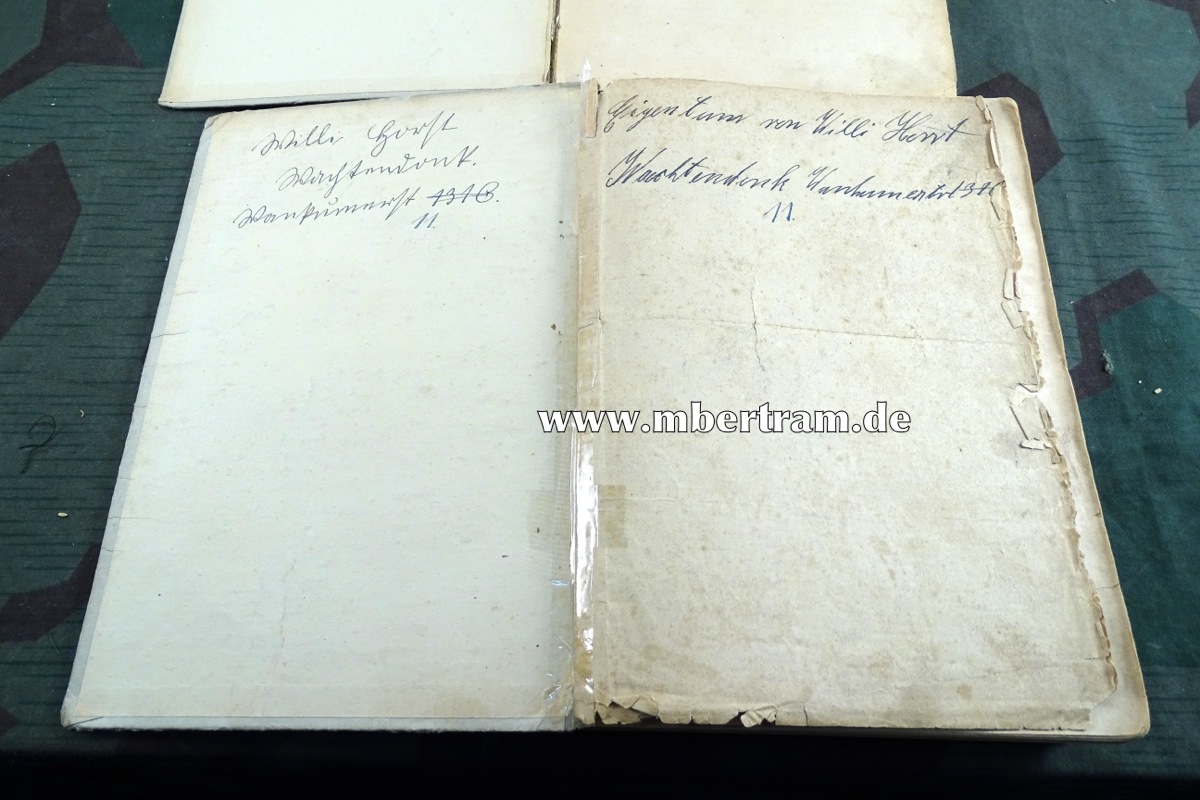 Willi Horst
Wachtendonk.
Wankumerst 131b.
11.
Eigentum von Willi Horst
Wachtendonk Wankumerstr
11.
www.mbertram.de